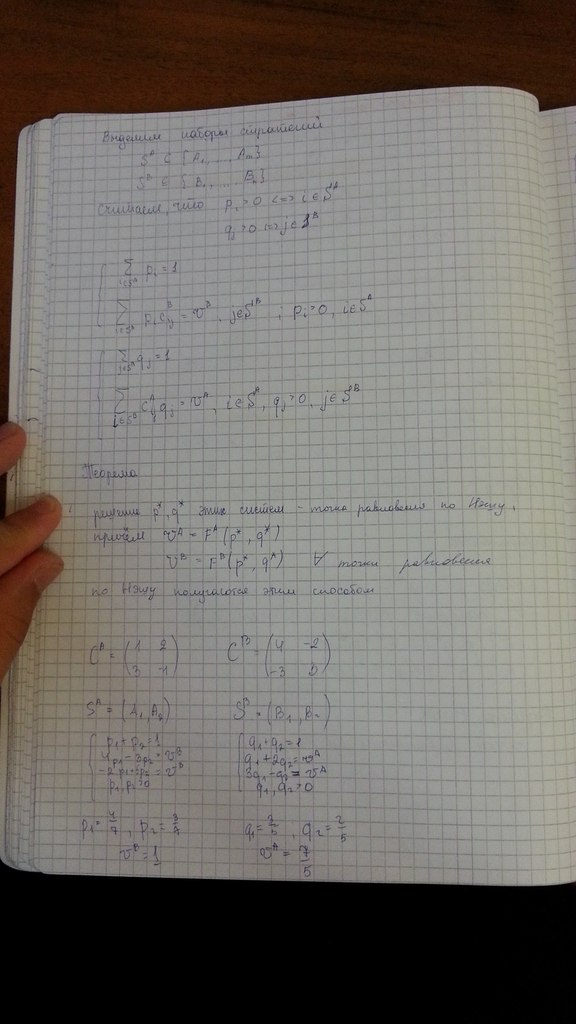 Выделим наборы стратегий
S^A ⊂ {A₁, ... , Aₘ}
S^B ⊂ {B₁, ... Bₙ}
Считаем, что pᵢ > 0 <=> i ∈ S^A
qⱼ > 0 <=> j ∈ S^B
∑_{i∈S^A} pᵢ = 1
∑_{i∈S^A} pᵢ c^B_{ij} = v^B, j ∈ S^B ; pᵢ > 0, i ∈ S^A
∑_{j∈S^B} qⱼ = 1
∑_{j∈S^B} c^A_{ij} qⱼ = v^A, i ∈ S^A, qⱼ > 0, j ∈ S^B
Теорема
решение p*, q* этих систем - точка равновесия по Нэшу,
причём v^A = F^A (p*, q*)
v^B = F^B (p*, q*) ∀ точки равновесия
по Нэшу получаются этим способом
C^A = (1 2 / 3 -1) C^B = (4 -2 / -3 5)
S^A = (A₁, A₂) S^B = (B₁, B₂)
p₁ + p₂ = 1 q₁ + q₂ = 1
4p₁ - 3p₂ = v^B q₁ + 2q₂ = v^A
-2p₁ + 5p₂ = v^B 3q₁ - q₂ = v^A
p₁, p₂ > 0 q₁, q₂ > 0
p₁ = 4/7, p₂ = 3/7 q₁ = 3/5, q₂ = 2/5
v^B = 1 v^A = 7/5